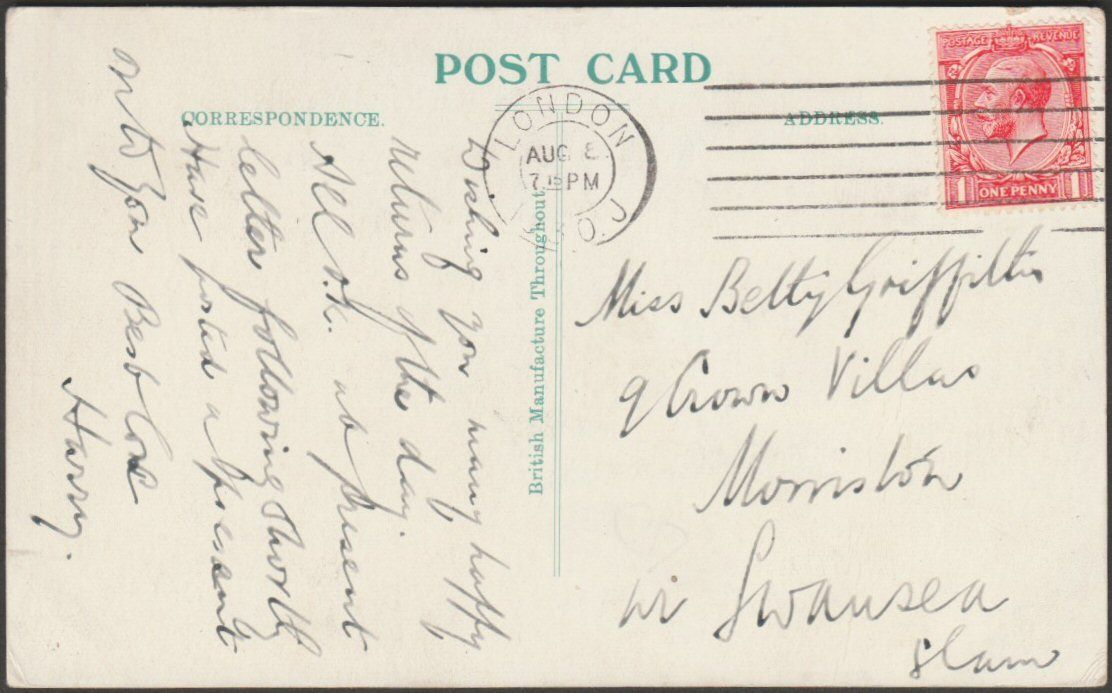 POST CARD
CORRESPONDENCE.
ADDRESS.
British Manufacture Throughout
LONDON
AUG 8
7.15 PM
POSTAGE REVENUE
1 ONE PENNY 1
Wishing you many happy
returns of the day.
All O.K. at present
letter following shortly
Have posted a present
on to you Best Love
Harry.
Miss Betty Griffiths
9 Crown Villas
Morriston
nr Swansea
Glam